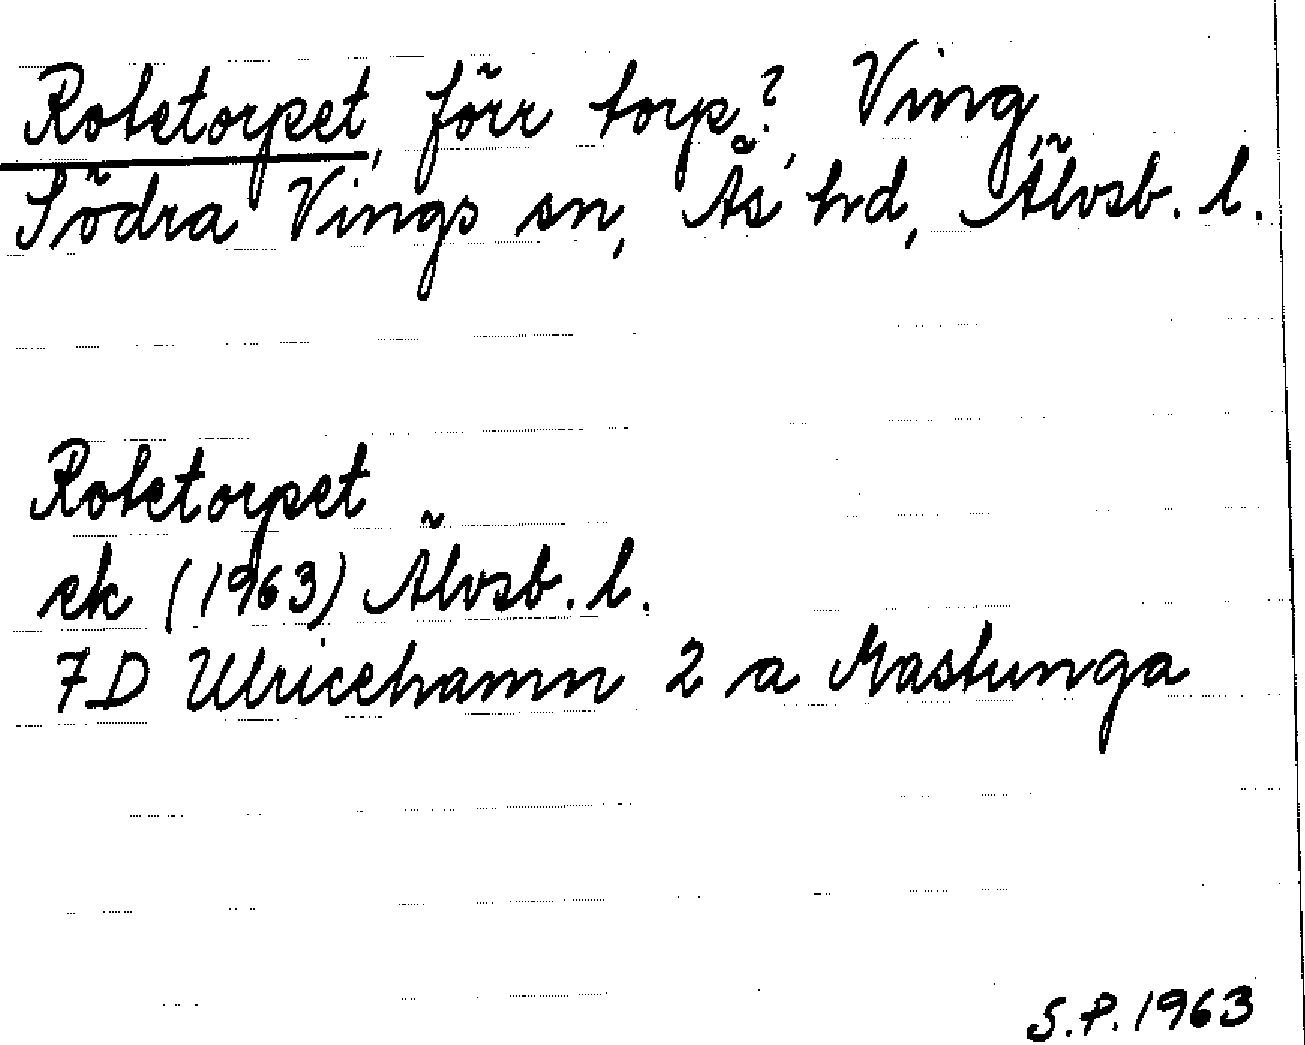 Robetorpet, förr torp? Ving,
Södra Vings sn, Ås hrd, Älvsb. l.
Robetorpet
ek (1963) Älvsb. l.
7D Ulricehamn 2 a Mastunga
S.P. 1963